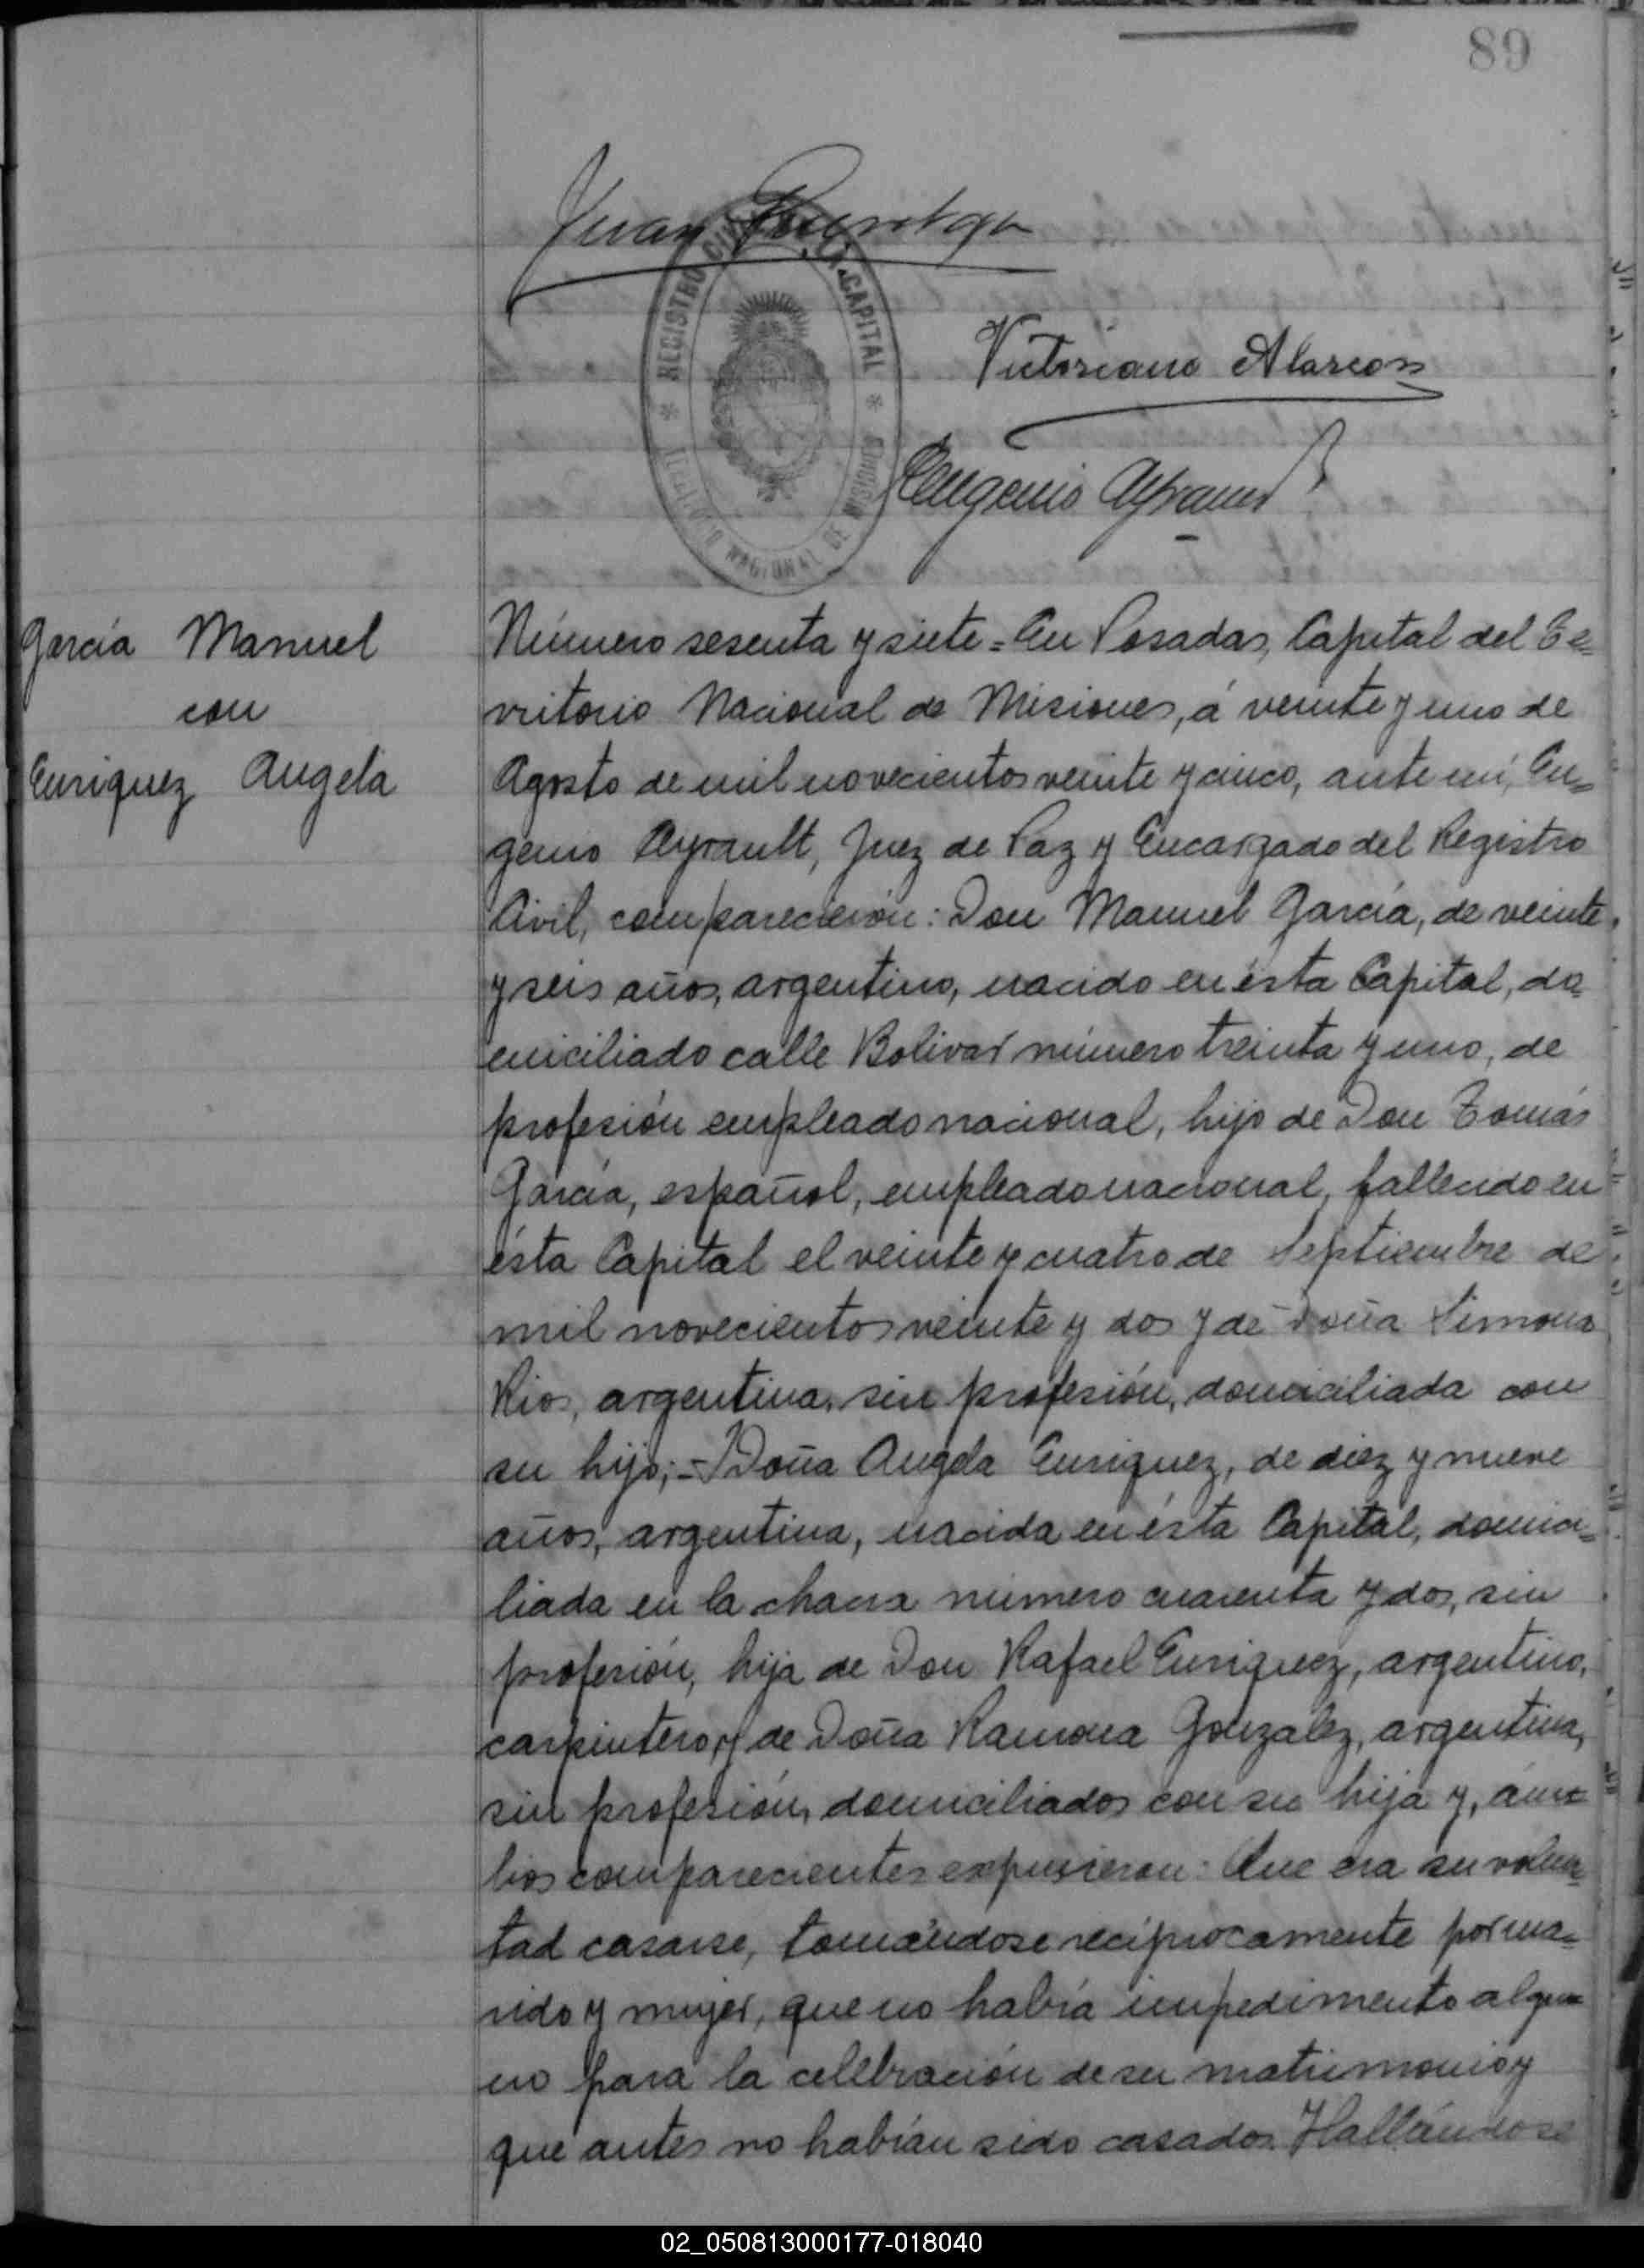 89
Juan
REGISTRO CIVIL CAPITAL
TERRITORIO NACIONAL DE MISIONES
Victoriano Alarcon
Eugenio Ayrault
García Manuel
con
Enriquez Angela
Número sesenta y siete = En Posadas, Capital del Te=
rritorio Nacional de Misiones, á veinte y uno de
Agosto de mil novecientos veinte y cinco, ante mí, Eu=
genio Ayrault, Juez de Paz y Encargado del Registro
Civil, comparecieron: Don Manuel García, de veinte
y seis años, argentino, nacido en ésta Capital, do=
miciliado calle Bolivar número treinta y uno, de
profesión empleado nacional, hijo de Don Tomás
García, español, empleado nacional, fallecido en
ésta Capital el veinte y cuatro de Septiembre de
mil novecientos veinte y dos y de Doña Simona
Rios, argentina, sin profesión, domiciliada con
su hijo; - Doña Angela Enriquez, de diez y nueve
años, argentina, nacida en ésta Capital, domici=
liada en la chacra número cuarenta y dos, sin
profesión, hija de Don Rafael Enriquez, argentino,
carpintero, y de Doña Ramona Gonzalez, argentina,
sin profesión, domiciliados con su hija y, ám=
bos comparecientes expusieron: Que era su volun=
tad casarse, tomándose recíprocamente por ma=
rido y mujer, que no había impedimento algu=
no para la celebración de su matrimonio y
que antes no habían sido casados. Hallándose
02_050813000177-018040